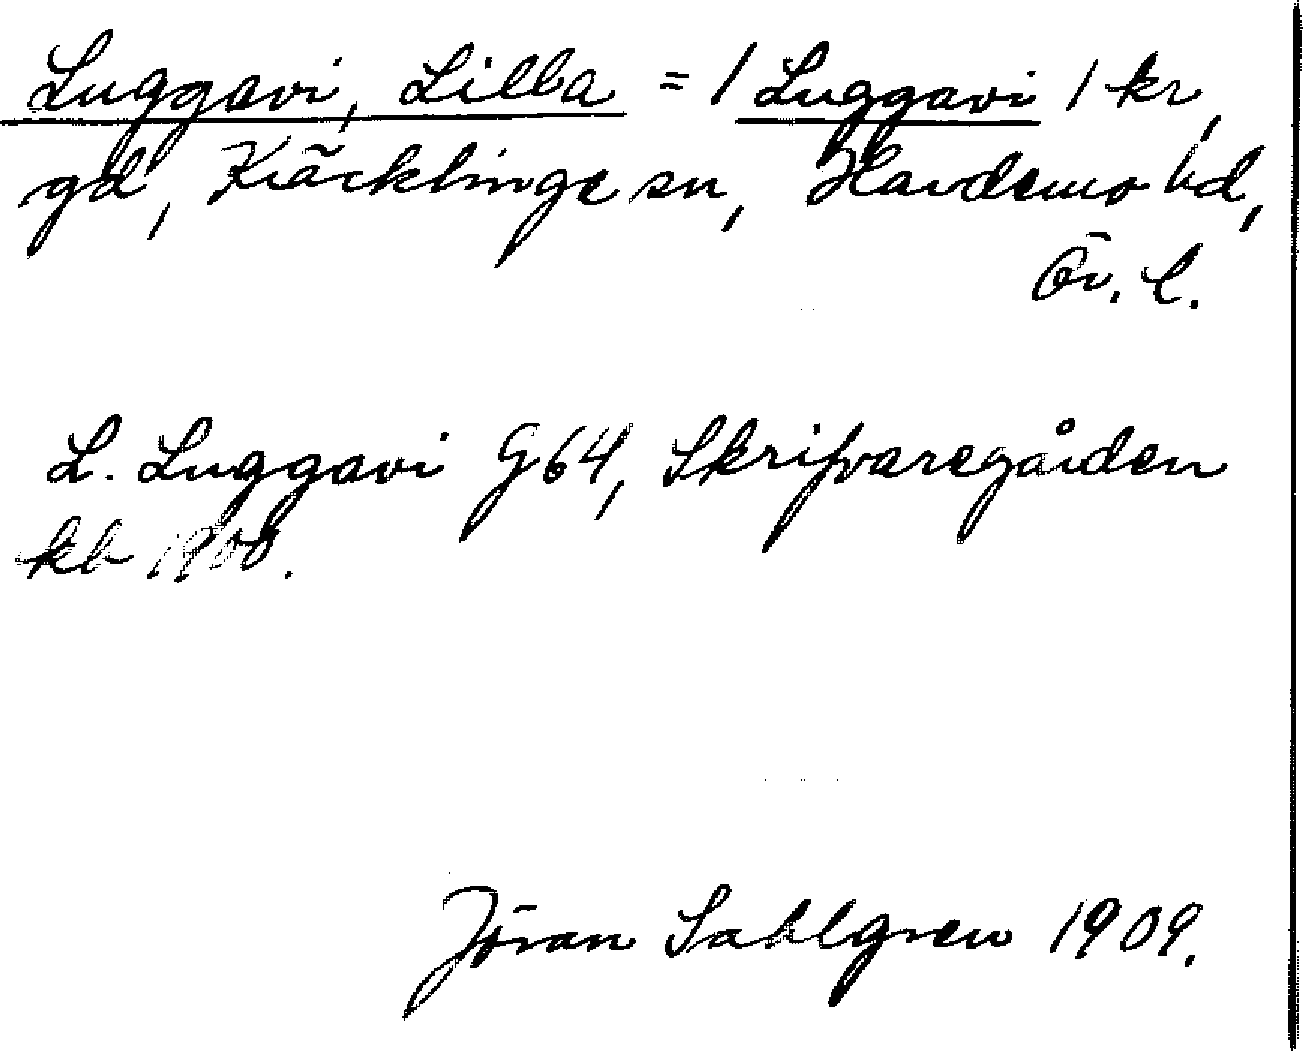 Luggavi, Lilla = / Luggavi / kr,
gd, Kräcklinge sn, Hardemo hd,
Ör. l.
L. Luggavi G64, Skrifvaregården
kb 1908.
Jöran Sahlgren 1909.